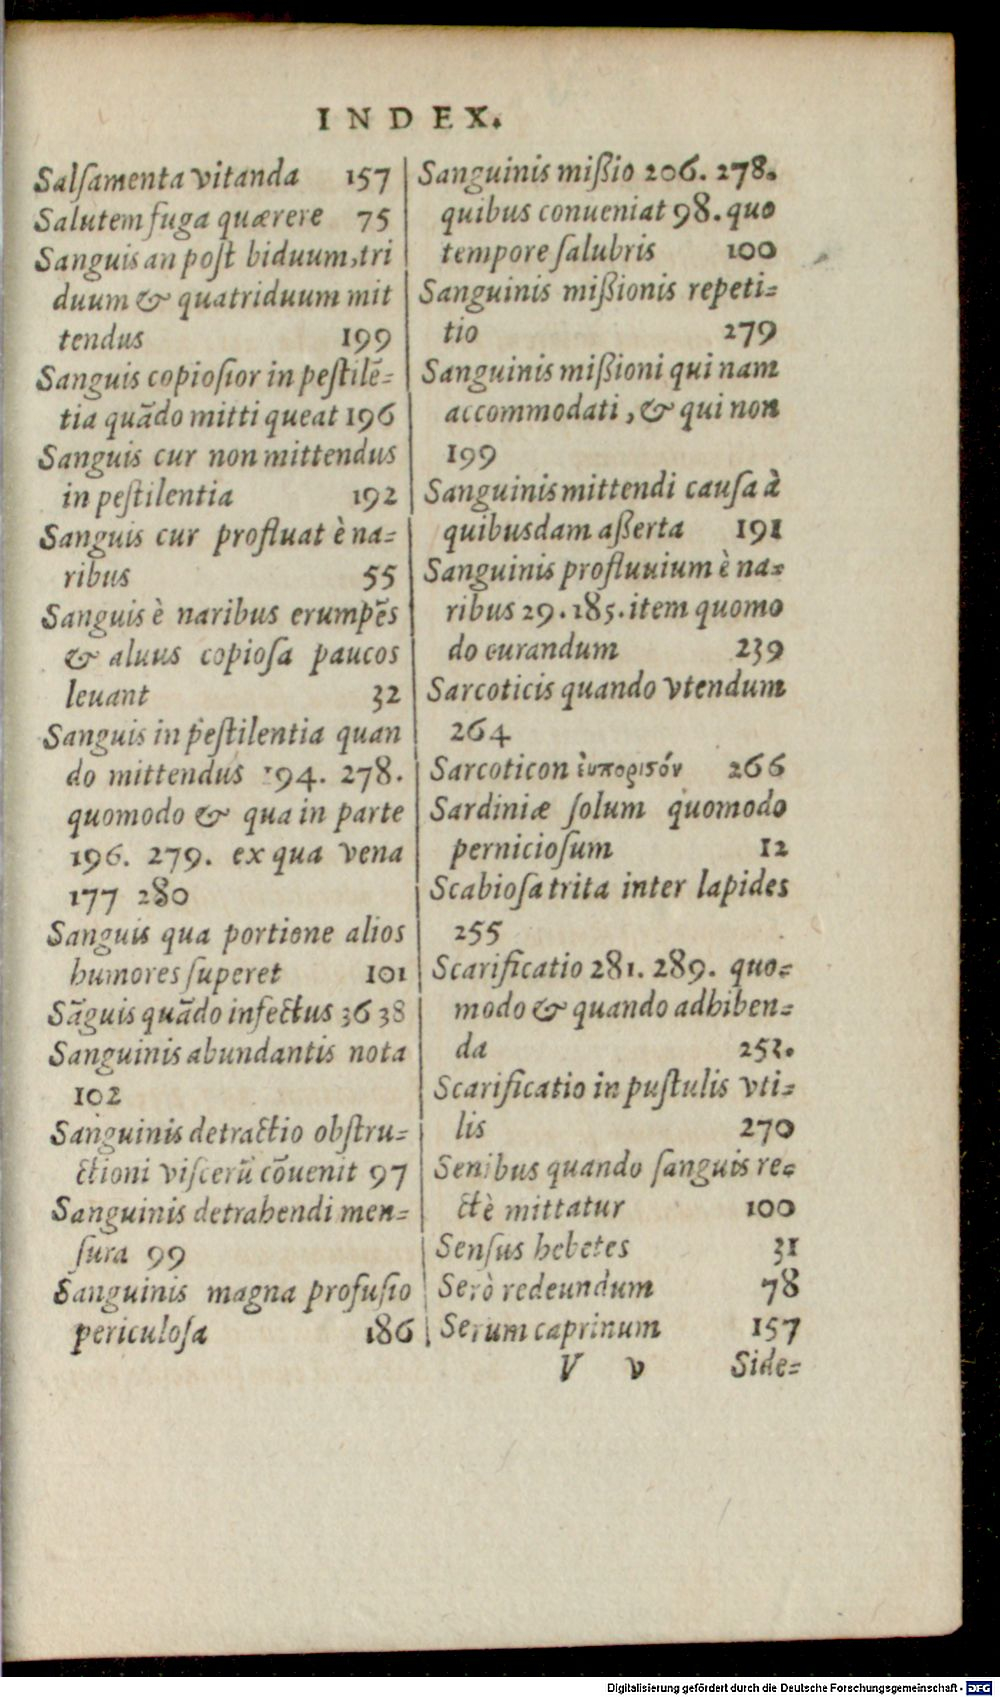 INDEX.
Salſamenta vitanda 157
Salutem fuga quærere 75
Sanguis an poſt biduum, tri
duum & quatriduum mit
tendus 199
Sanguis copioſior in peſtilē=
tia quādo mitti queat 196
Sanguis cur non mittendus
in peſtilentia 192
Sanguis cur profluat è na=
ribus 55
Sanguis è naribus erumpēs
& aluus copioſa paucos
leuant 32
Sanguis in peſtilentia quan
do mittendus 194. 278.
quomodo & qua in parte
196. 279. ex qua vena
177 280
Sanguis qua portione alios
humores ſuperet 101
Sāguis quādo infectus 36 38
Sanguinis abundantis nota
102
Sanguinis detractio obſtru=
ctioni viſcerū cōuenit 97
Sanguinis detrahendi men=
ſura 99
Sanguinis magna profuſio
periculoſa 186
Sanguinis mißio 206. 278.
quibus conueniat 98. quo
tempore ſalubris 100
Sanguinis mißionis repeti=
tio 279
Sanguinis mißioni qui nam
accommodati, & qui non
199
Sanguinis mittendi cauſa à
quibusdam aßerta 191
Sanguinis profluuium è na=
ribus 29. 185. item quomo
do curandum 239
Sarcoticis quando vtendum
264
Sarcoticon ἐυποριϛόν 266
Sardiniæ ſolum quomodo
pernicioſum 12
Scabioſa trita inter lapides
255
Scarificatio 281. 289. quo=
modo & quando adhiben=
da 253.
Scarificatio in puſtulis vti=
lis 270
Senibus quando ſanguis re=
ctè mittatur 100
Senſus hebetes 31
Serò redeundum 78
Serum caprinum 157
V v Side=
Digitalisierung gefördert durch die Deutsche Forschungsgemeinschaft - DFG